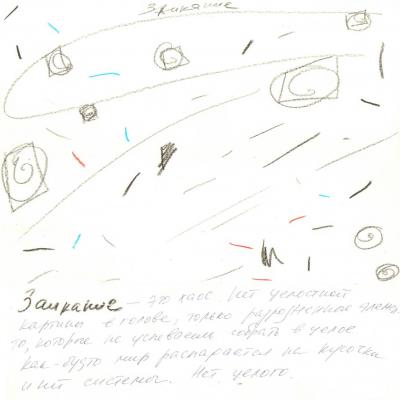 Заикание
Заикание – это хаос. Нет целостной
картины в голове, только разрозненные элемен-
ты, которые не успеваем собрать в целое.
Как-будто мир распадается на кусочки
и нет системы. Нет целого.